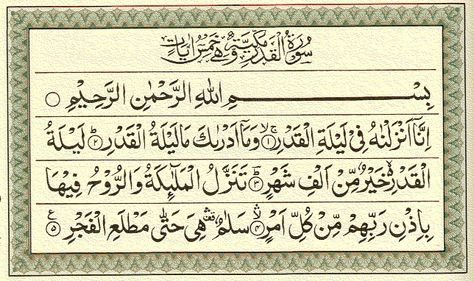 سُوْرَةُ الْقَدْرِ مَكِّيَّةٌ وَّهِيَ خَمْسُ اٰيَاتٍ
بِسْمِ اللّٰهِ الرَّحْمٰنِ الرَّحِيْمِ ○
اِنَّآ اَنْزَلْنٰهُ فِيْ لَيْلَةِ الْقَدْرِ ۝۱ۚۖ وَمَآ اَدْرٰىكَ مَا لَيْلَةُ الْقَدْرِ ۝۲ لَيْلَةُ
الْقَدْرِ ۙ خَيْرٌ مِّنْ اَلْفِ شَهْرٍ ۝۳ تَنَزَّلُ الْمَلٰٓئِكَةُ وَالرُّوْحُ فِيْهَا
بِاِذْنِ رَبِّهِمْ مِّنْ كُلِّ اَمْرٍ ۝۴ۙ سَلٰمٌ ۛ هِيَ حَتّٰى مَطْلَعِ الْفَجْرِ ۝۵ ع